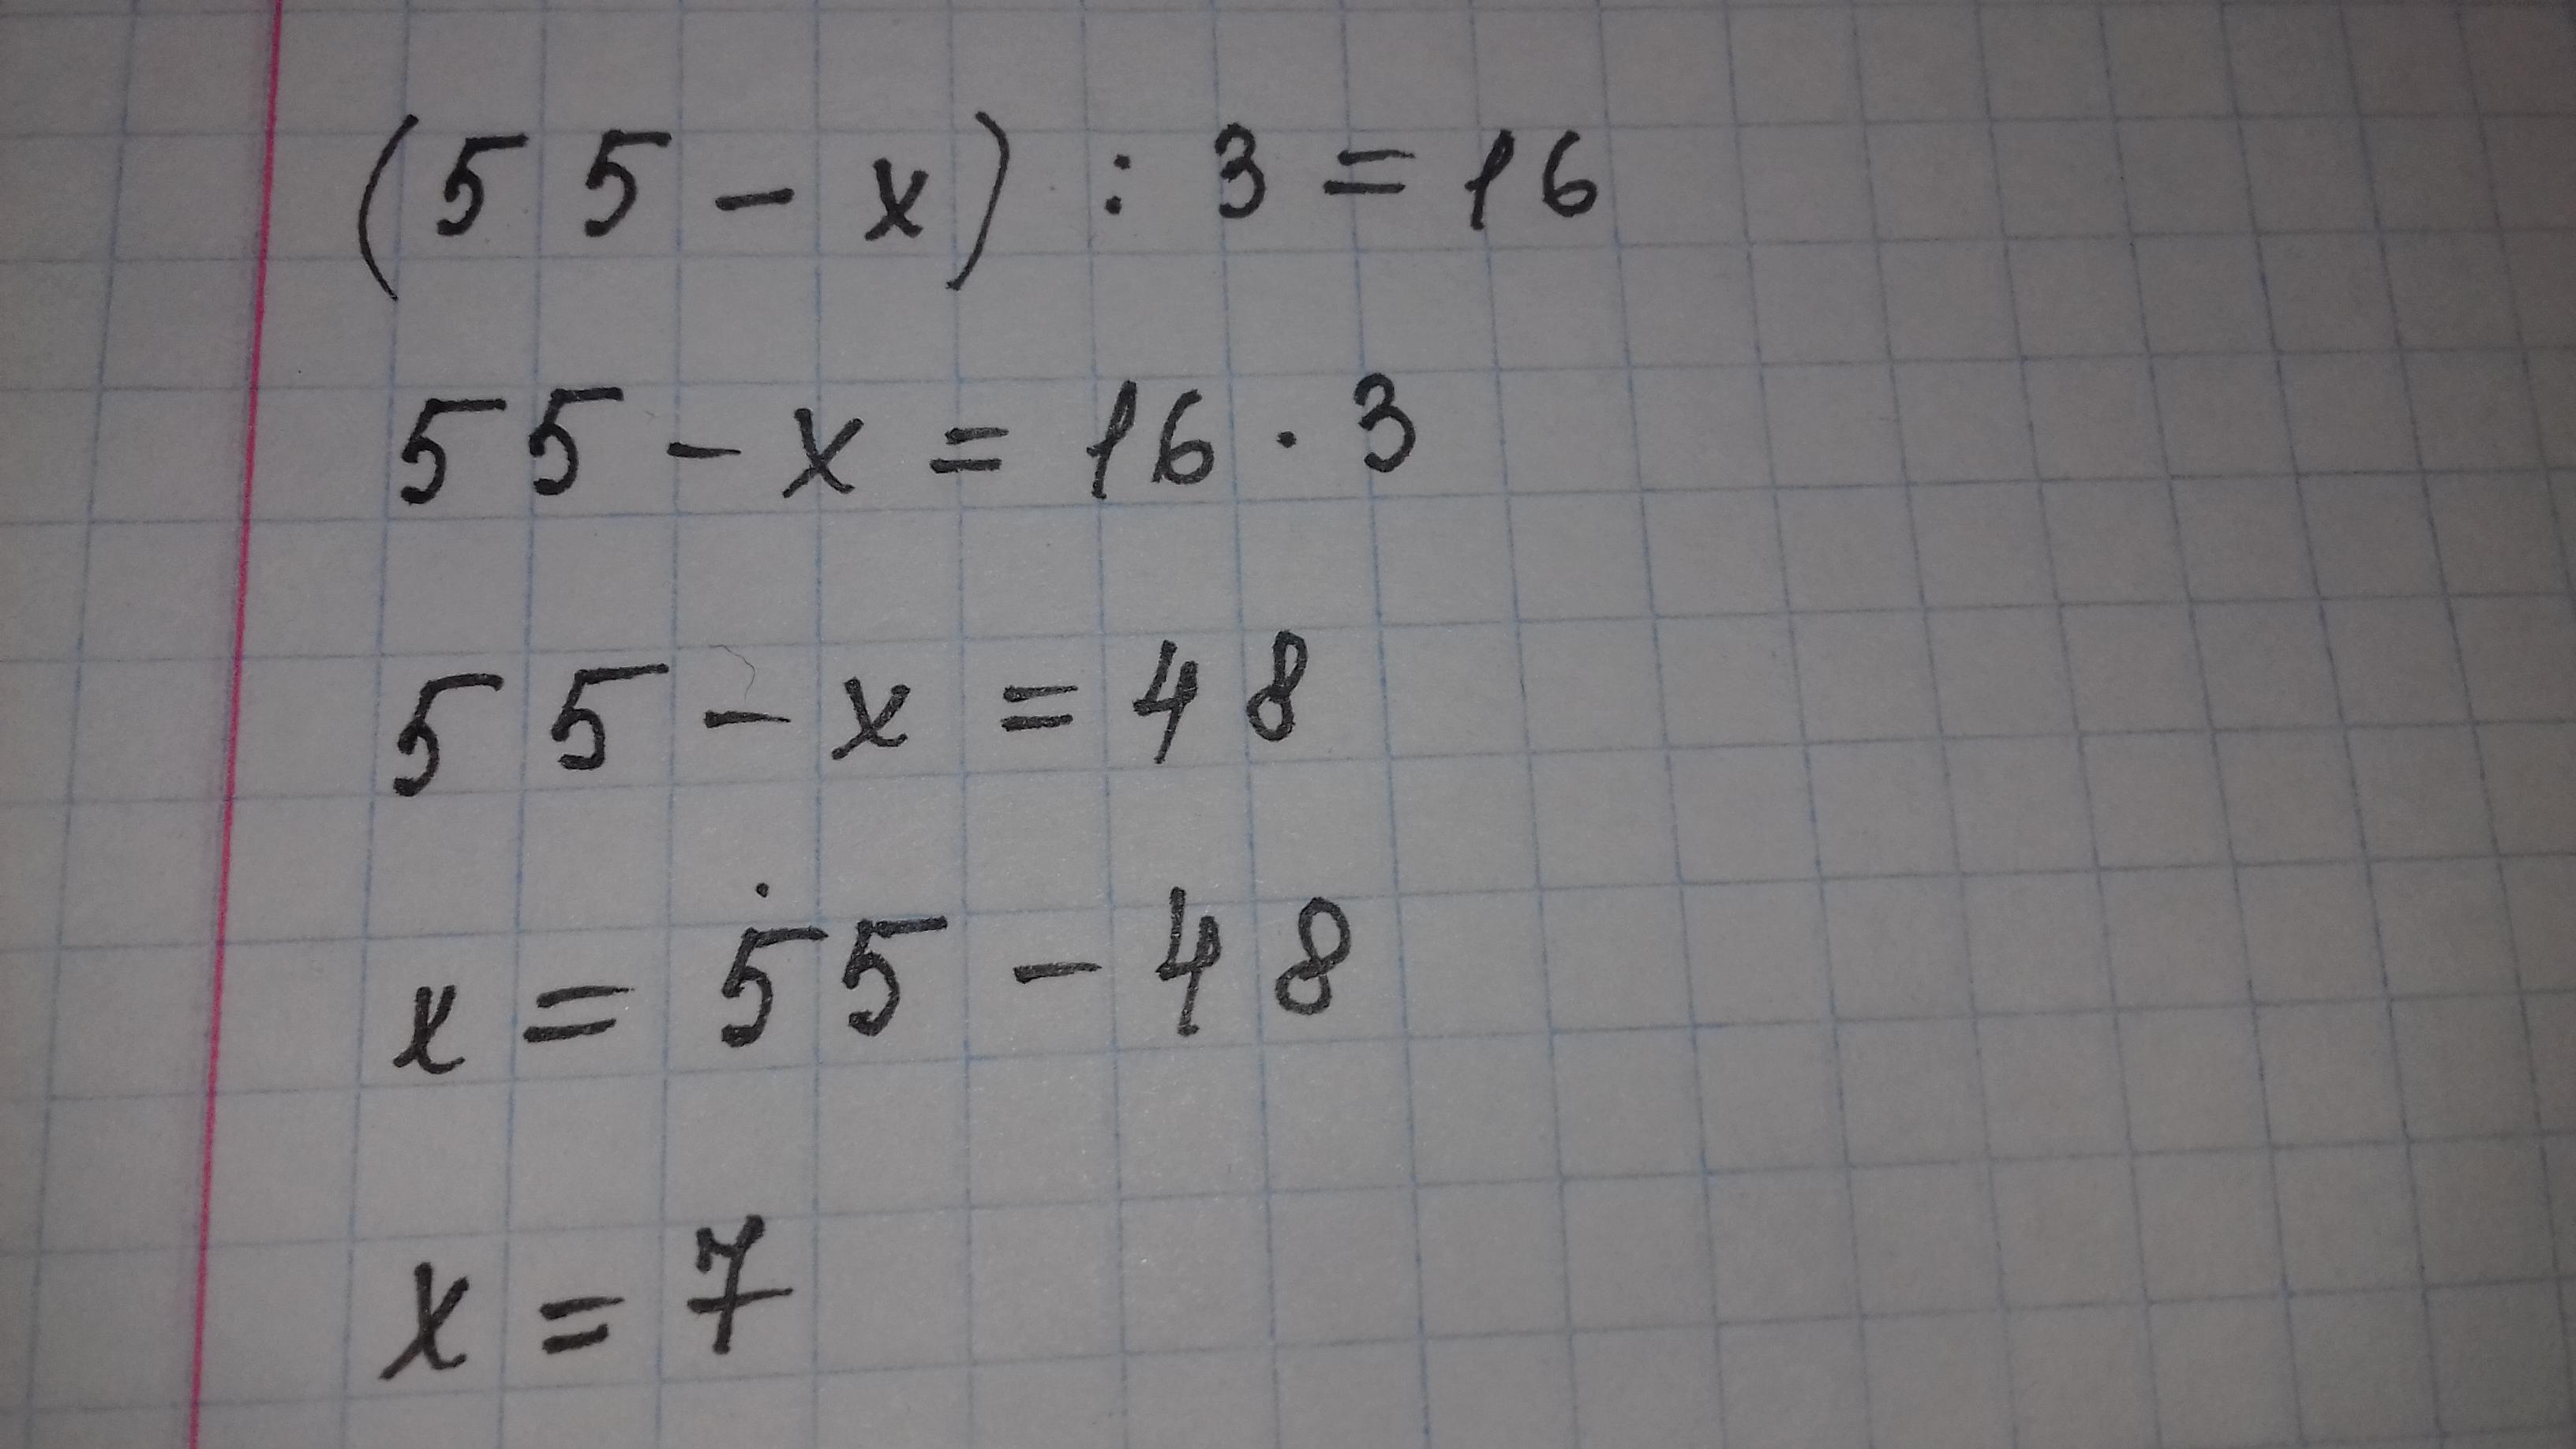 (55 - x) : 3 = 16
55 - x = 16 · 3
55 - x = 48
x = 55 - 48
x = 7